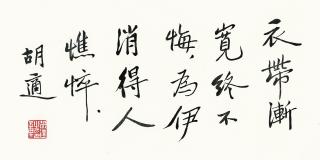 衣帶漸
寬終不
悔，為伊
消得人
憔悴.
胡適